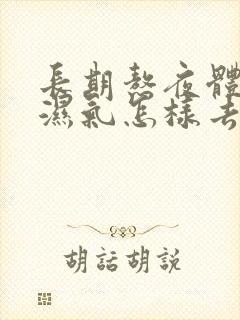 長期熬夜體
濕氣怎樣去
胡話胡說